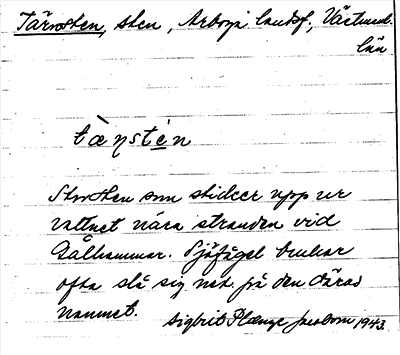 Tärnsten, sten, Arboga landsf., Västmanl.
län
tæ̀ṇstén
Stor sten som sticker upp ur
vattnet nära stranden vid
Gålhammar. Sjöfågel brukar
ofta slå sig ned på den därav
namnet.
Sigbrit Plænge Jacobson 1943.